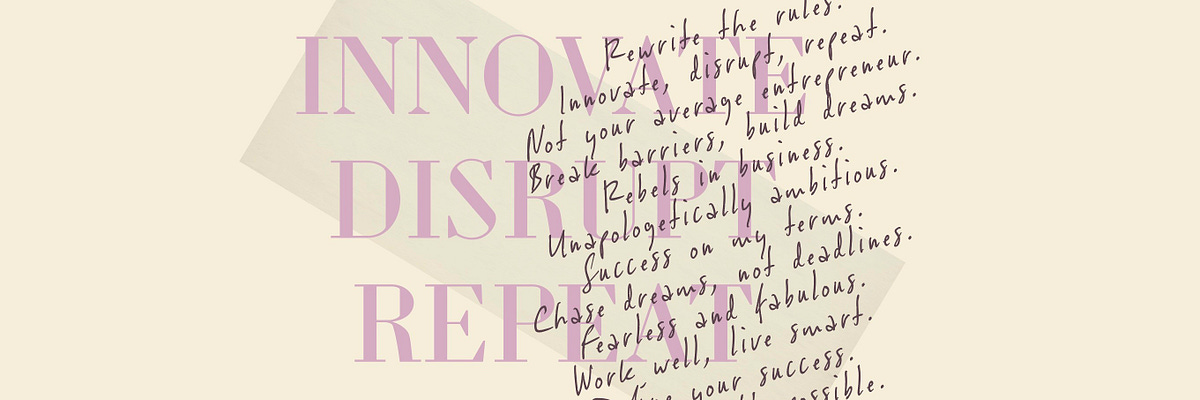 INNOVATE
DISRUPT
REPEAT
Rewrite the rules.
Innovate, disrupt, repeat.
Not your average entrepreneur.
Break barriers, build dreams.
Rebels in business.
Unapologetically ambitious.
Success on my terms.
Chase dreams, not deadlines.
Fearless and fabulous.
Work well, live smart.
your success.